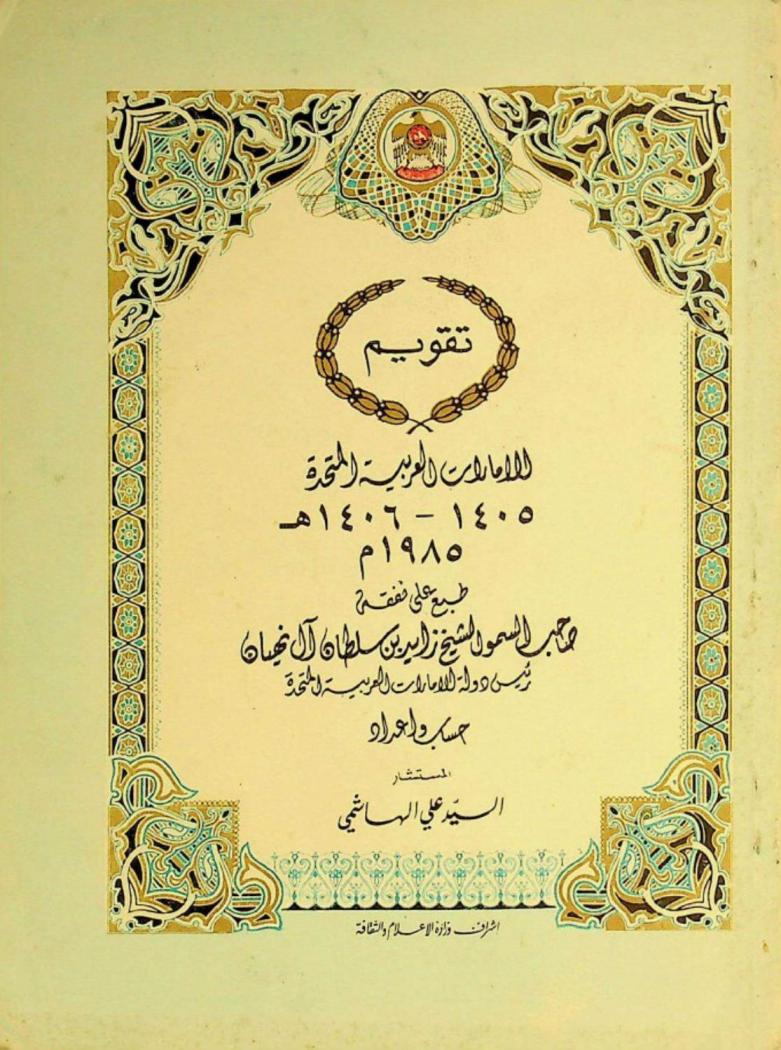 تقويم
الامارات العربية المتحدة
١٤٠٥ - ١٤٠٦هـ
١٩٨٥م
طبع على نفقة
صاحب السمو الشيخ زايد بن سلطان آل نهيان
رئيس دولة الامارات العربية المتحدة
حساب واعداد
المستشار
السيّد علي الهاشمي
اشراف وزارة الاعلام والثقافة